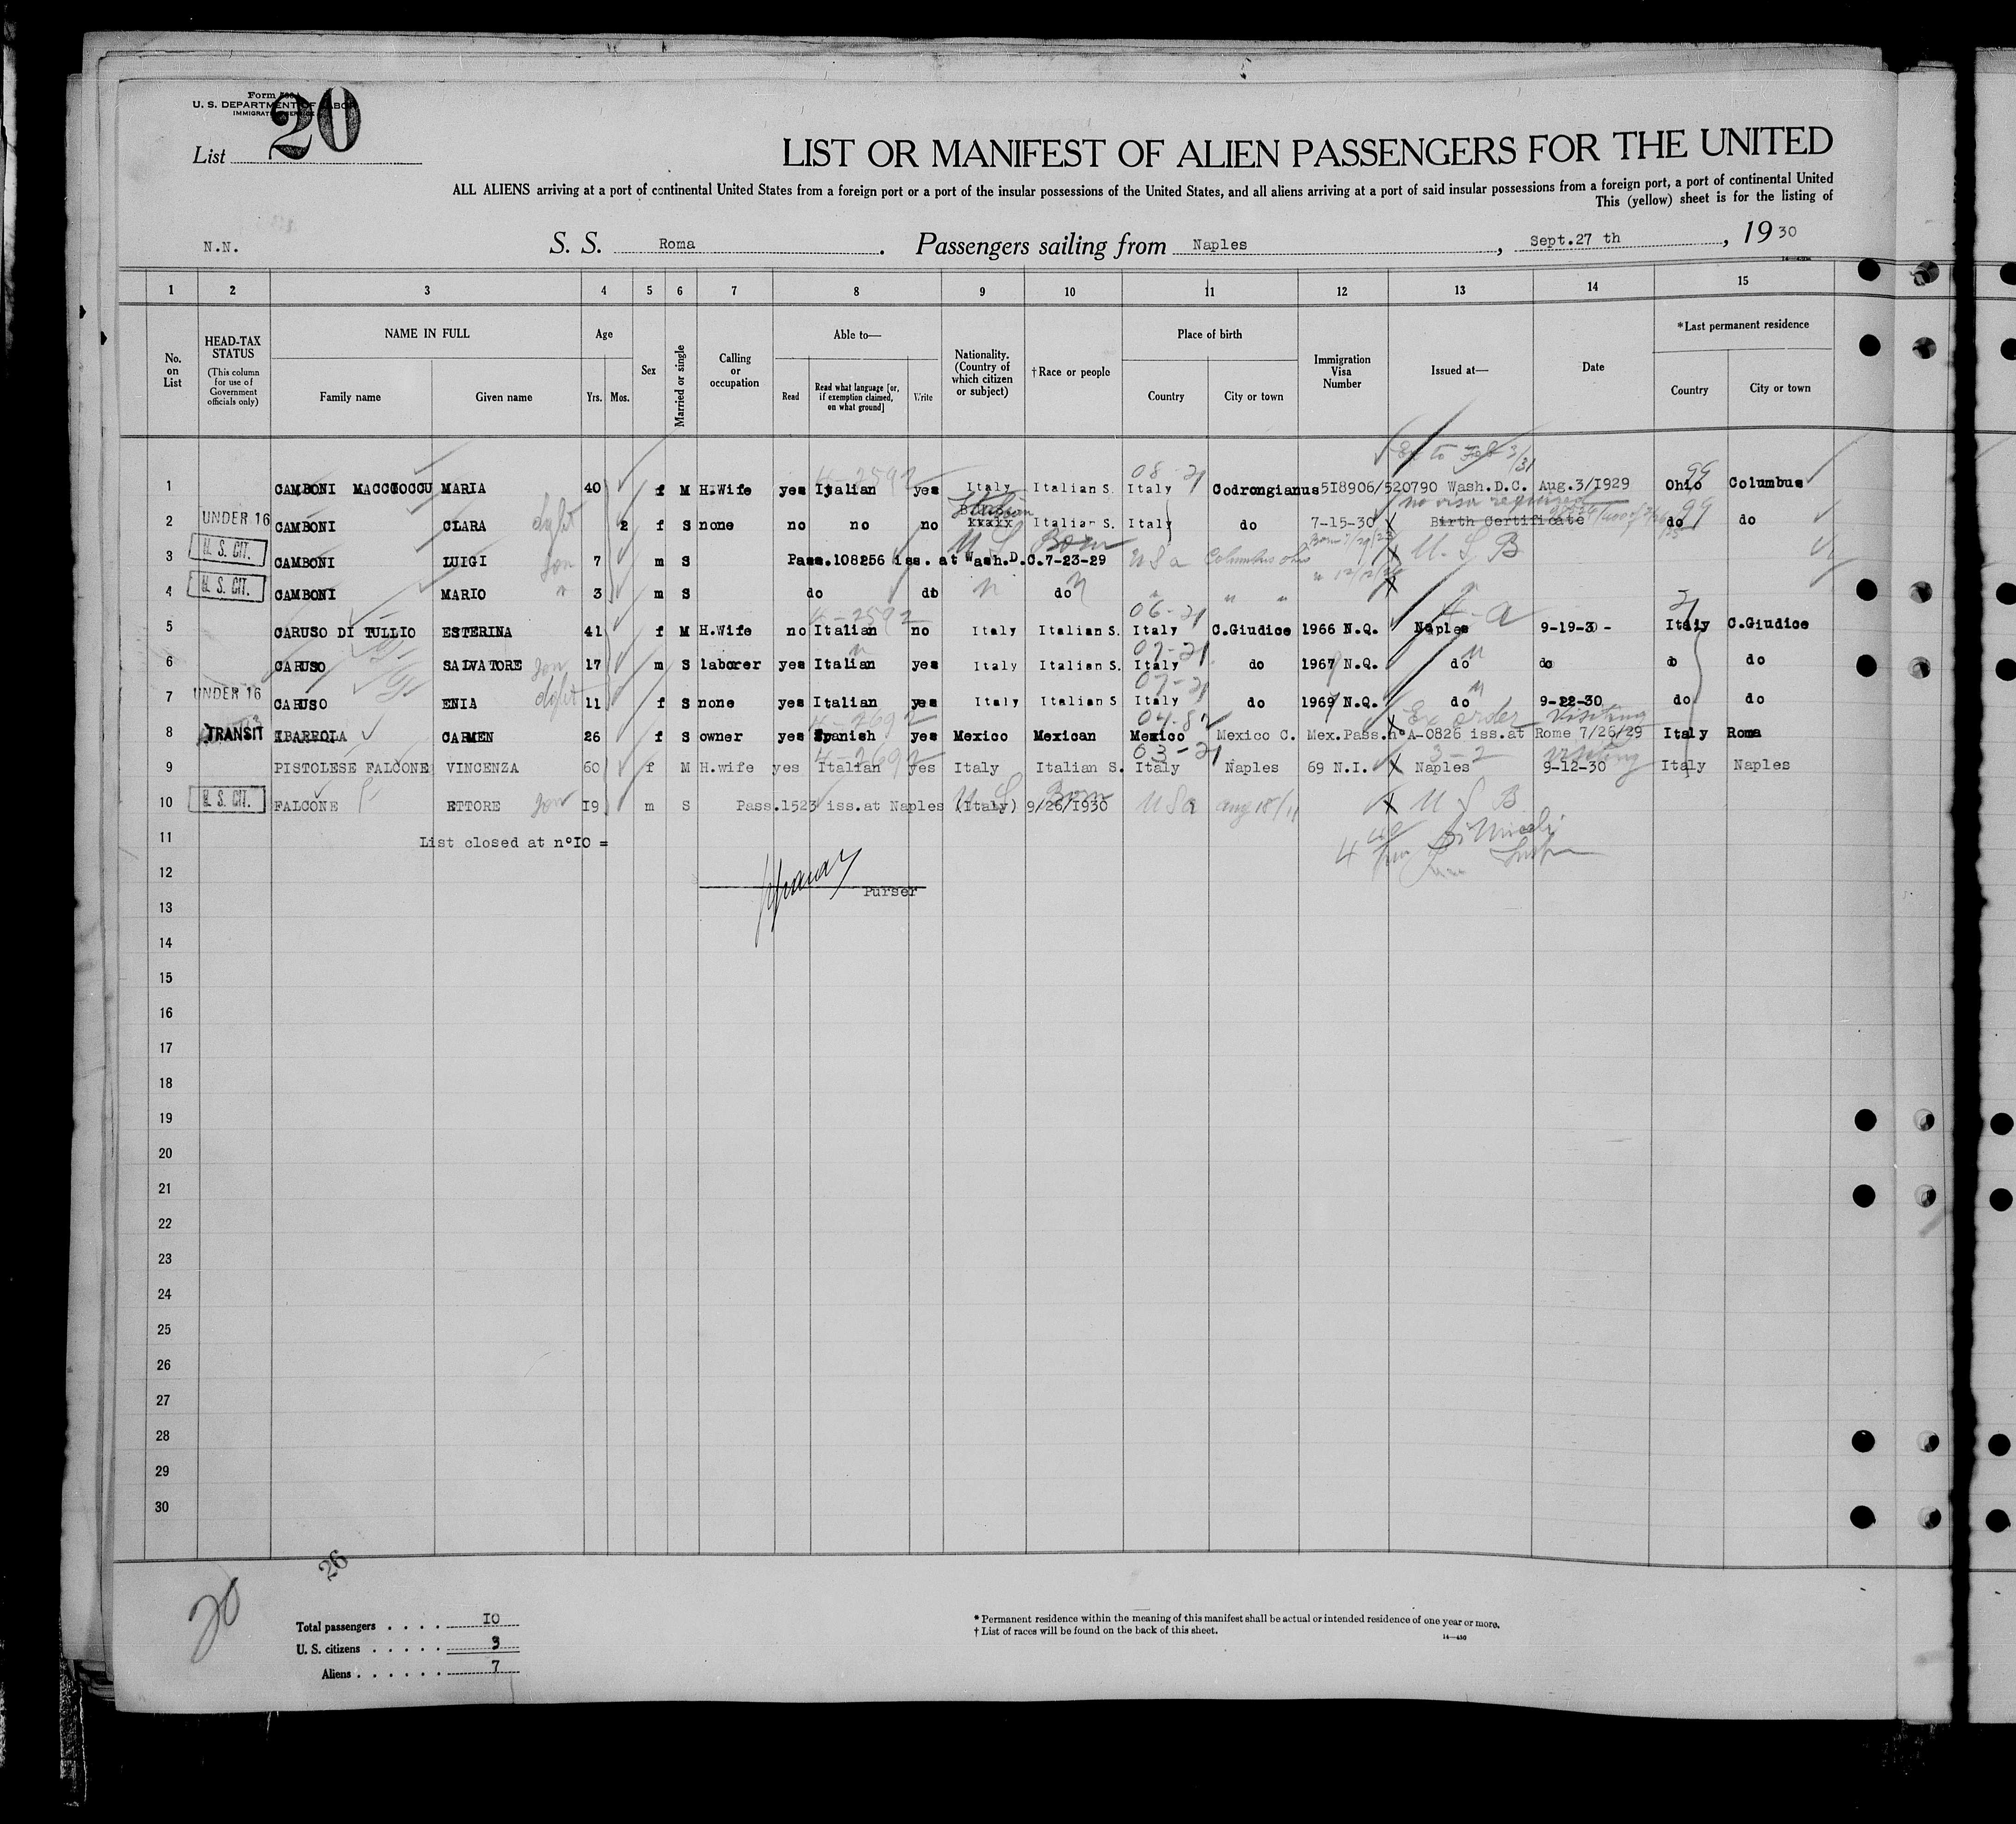 Form
U. S. DEPARTMENT OF LABOR
IMMIGRATION SERVICE
List 20
LIST OR MANIFEST OF ALIEN PASSENGERS FOR THE UNITED
ALL ALIENS arriving at a port of continental United States from a foreign port or a port of the insular possessions of the United States, and all aliens arriving at a port of said insular possessions from a foreign port, a port of continental United
This (yellow) sheet is for the listing of
N.N. S. S. Roma . Passengers sailing from Naples , Sept.27 th , 19 30
1 2 3 4 5 6 7 8 9 10 11 12 13 14 15
No. on List
HEAD-TAX STATUS (This column for use of Government officials only)
NAME IN FULL
Family name Given name
Age
Yrs. Mos.
Sex
Married or single
Calling or occupation
Able to—
Read Read what language [or, if exemption claimed, on what ground] Write
Nationality. (Country of which citizen or subject)
†Race or people
Place of birth
Country City or town
Immigration Visa Number
Issued at—
Date
*Last permanent residence
Country City or town
Ex to Feb 3/31
4-2592 08-21 99
1 CAMBONI MACCIOCCU MARIA 40 f M H.Wife yes Italian yes Italy Italian S. Italy Codrongianus 518906/520790 Wash.D.C. Aug.3/1929 Ohio Columbus
Italian no visa required 99
2 UNDER 16 CAMBONI CLARA 2 f S none no no no xxxxx Italian S. Italy do 7-15-30 Birth Certificate do do
U S Born Born
3 U. S. CIT. CAMBONI LUIGI son 7 m S Pass.108256 iss. at Wash.D.C.7-23-29 USa Columbus Ohio U. S. B
4 U. S. CIT. CAMBONI MARIO " 3 m S do do " do " " "
4-2592 06-21 4-a 21
5 CARUSO DI TULLIO ESTERINA 41 f M H.Wife no Italian no Italy Italian S. Italy C.Giudice 1966 N.Q. Naples 9-19-30- Italy C.Giudice
" 07-21
6 CARUSO SALVATORE son 17 m S laborer yes Italian yes Italy Italian S. Italy do 1967 N.Q. do " do do do
07-21
7 UNDER 16 CARUSO ENIA 11 f S none yes Italian yes Italy Italian S Italy do 1969 N.Q. do " 9-22-30 do do
4-2692 04-82 Ex order Visiting
8 TRANSIT IBARROLA CARMEN 26 f S owner yes Spanish yes Mexico Mexican Mexico Mexico C. Mex.Pass.n° A-0826 iss.at Rome 7/26/29 Italy Roma
4-2692 03-21 3-2 Visiting
9 PISTOLESE FALCONE VINCENZA 60 f M H.wife yes Italian yes Italy Italian S. Italy Naples 69 N.I. Naples 9-12-30 Italy Naples
U S Born
10 U. S. CIT. FALCONE ETTORE son 19 m S Pass.1523 iss.at Naples (Italy) 9/26/1930 USa aug 18/11 U S B
11 List closed at n°10 =
12 Purser
13
14
15
16
17
18
19
20
21
22
23
24
25
26
27
28
29
30
26
20
Total passengers . . . . 10
U. S. citizens . . . . . 3
Aliens . . . . . . 7
* Permanent residence within the meaning of this manifest shall be actual or intended residence of one year or more.
† List of races will be found on the back of this sheet.
14—450